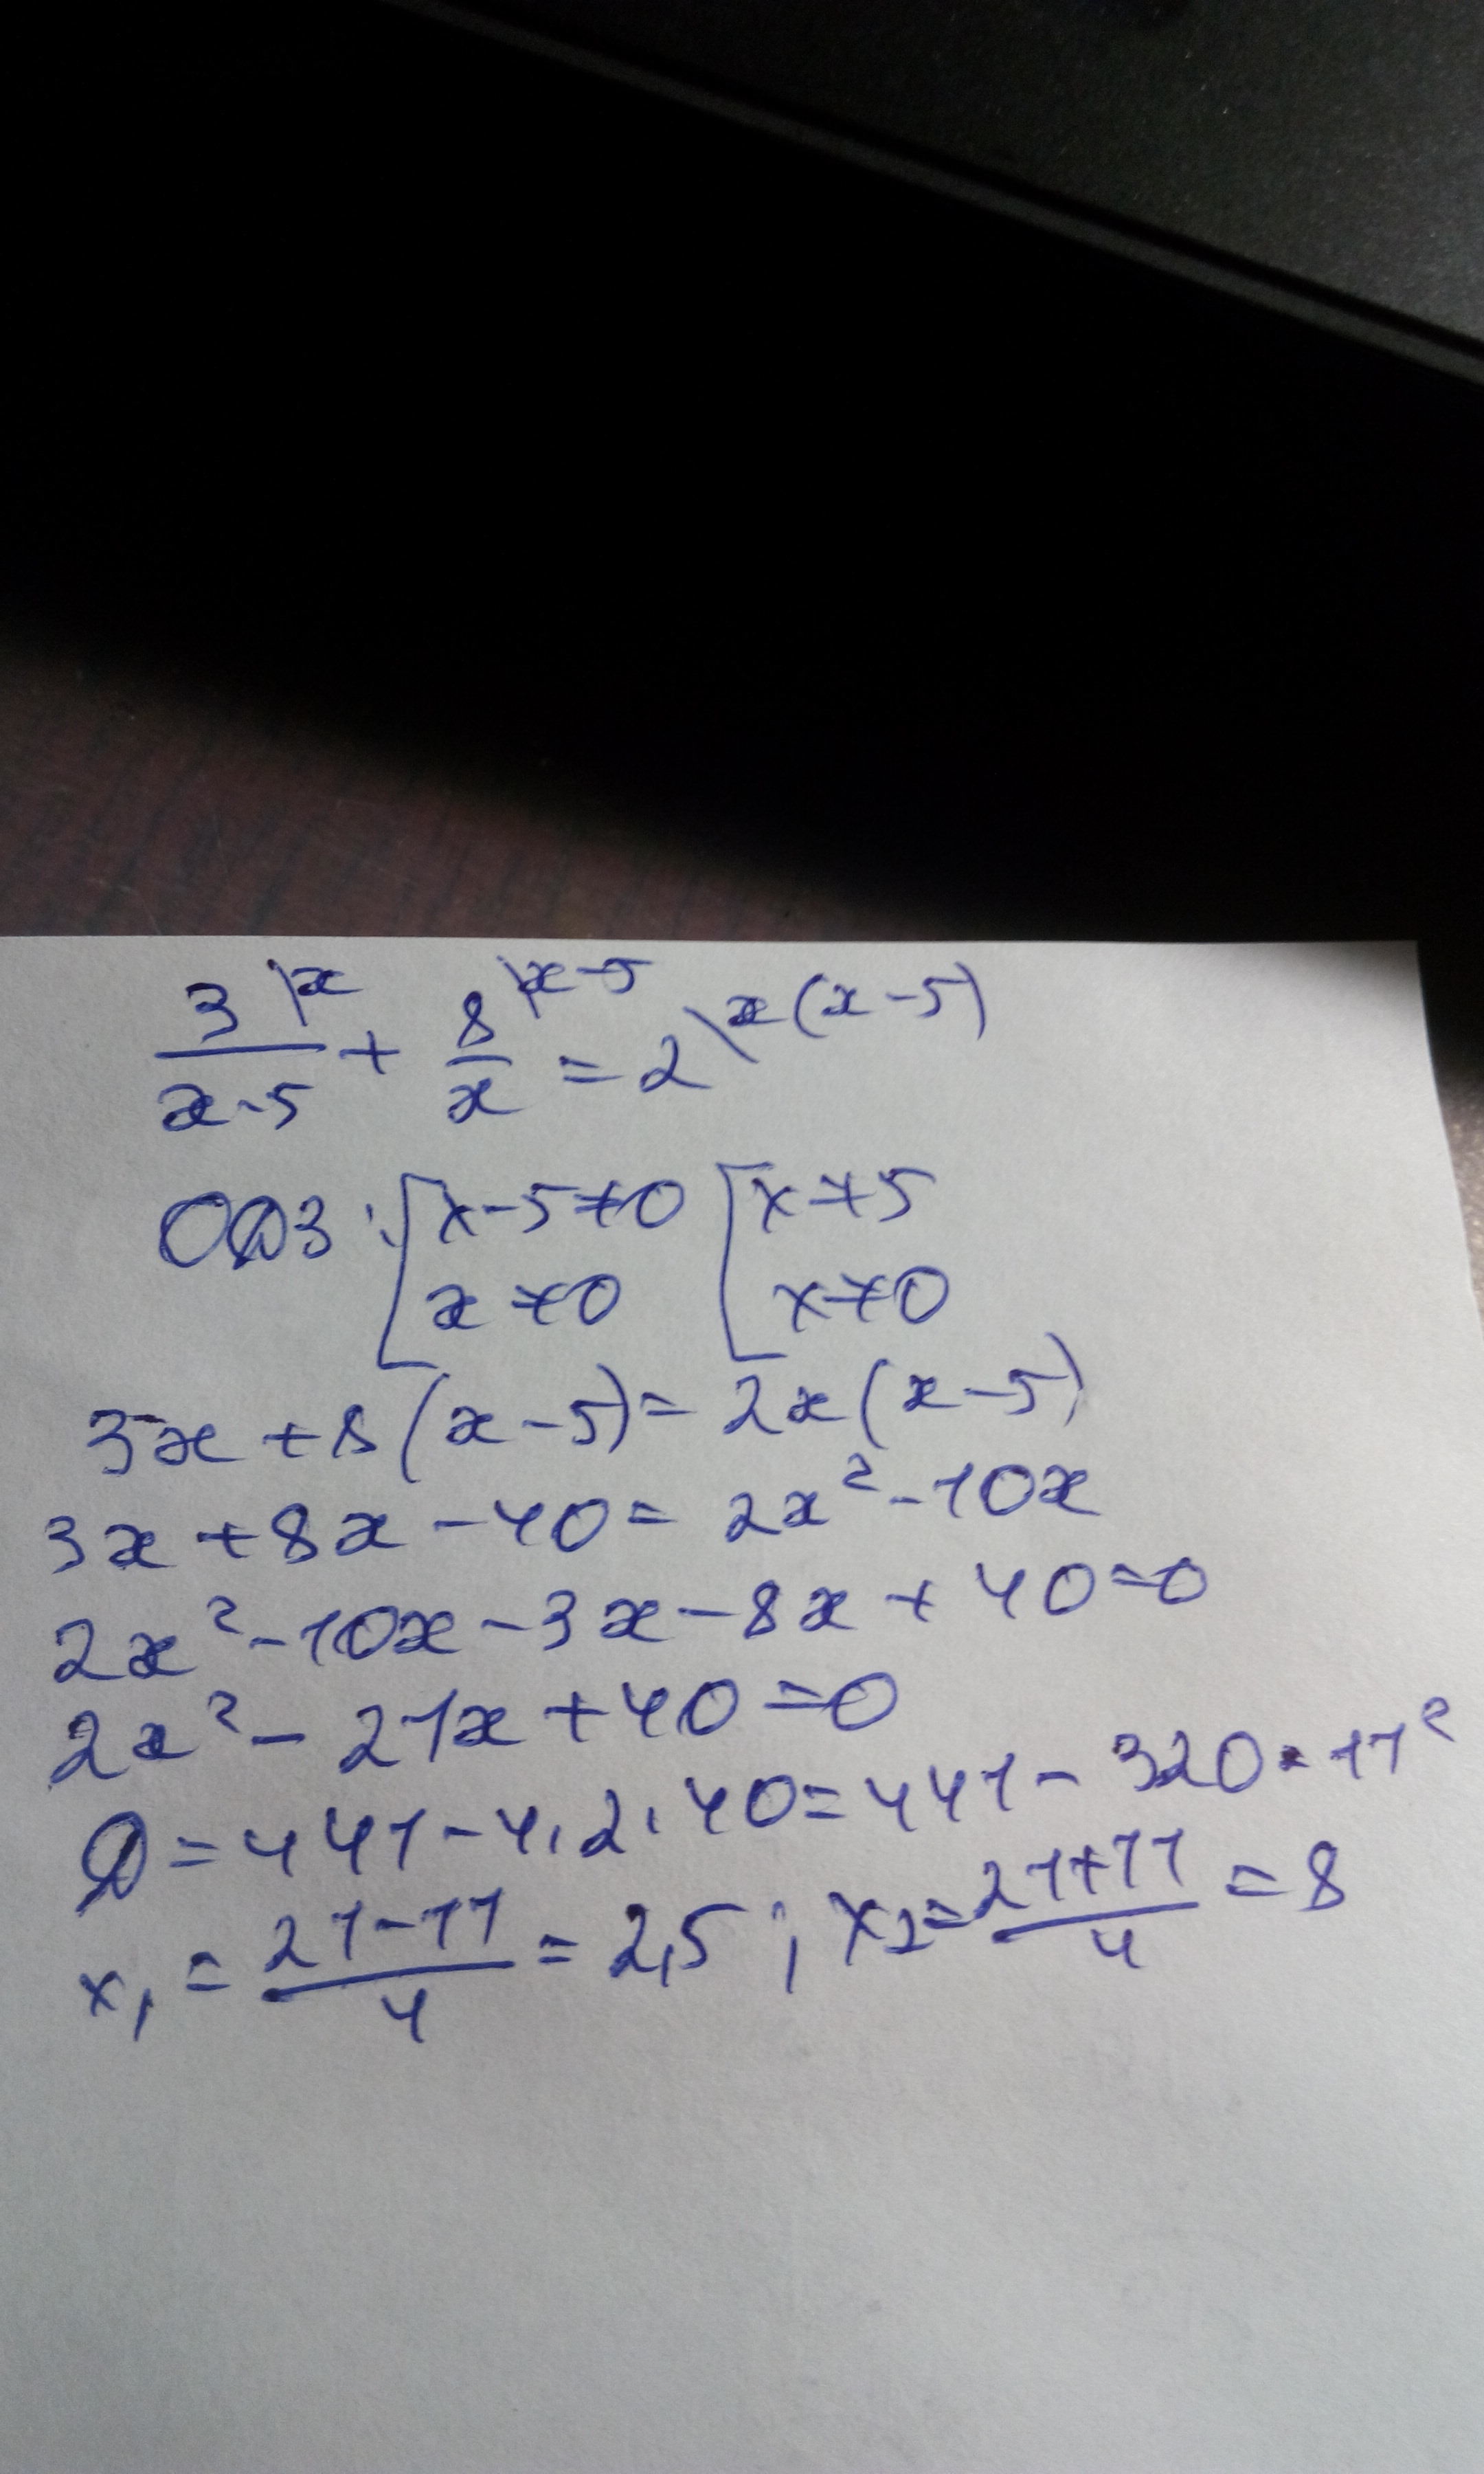 3\x/(x-5) + 8\x-5/x = 2\x(x-5)
ОДЗ: [x-5≠0 [x≠5
x≠0 x≠0
3x+8(x-5)=2x(x-5)
3x+8x-40=2x²-10x
2x²-10x-3x-8x+40=0
2x²-21x+40=0
D=441-4.2.40=441-320=11²
x₁=(21-11)/4=2,5; x₂=(21+11)/4=8